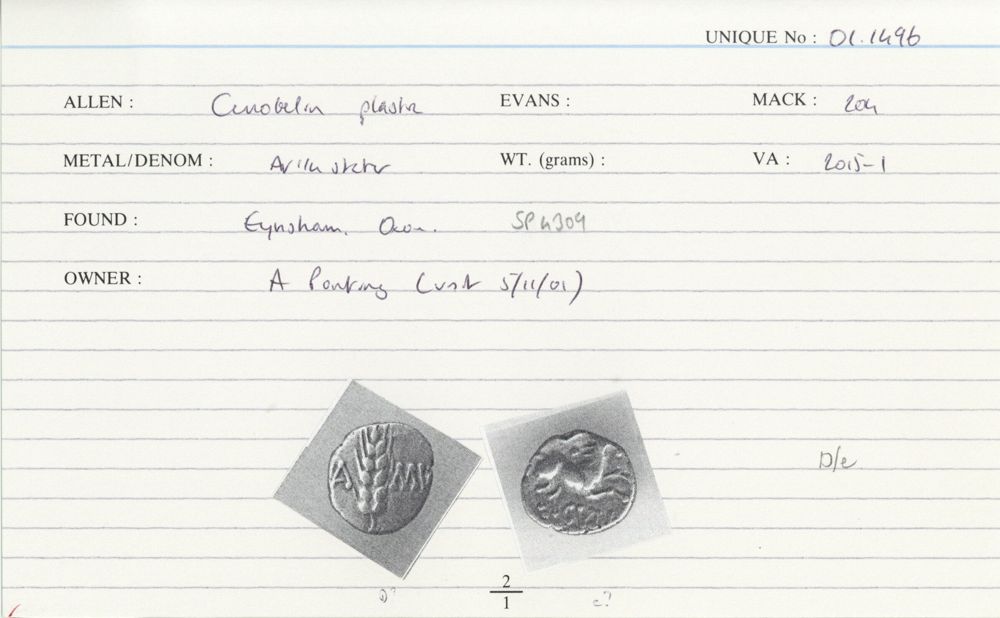 UNIQUE No : 01.1496
ALLEN : Cunobelin plastic EVANS : MACK : 204
METAL/DENOM : AV 1/4 stater WT. (grams) : VA : 2015-1
FOUND : Eynsham, Oxon. SP 4309
OWNER : A Ponting (visit 5/11/01)
A MV
D/e
D? 2/1 e?